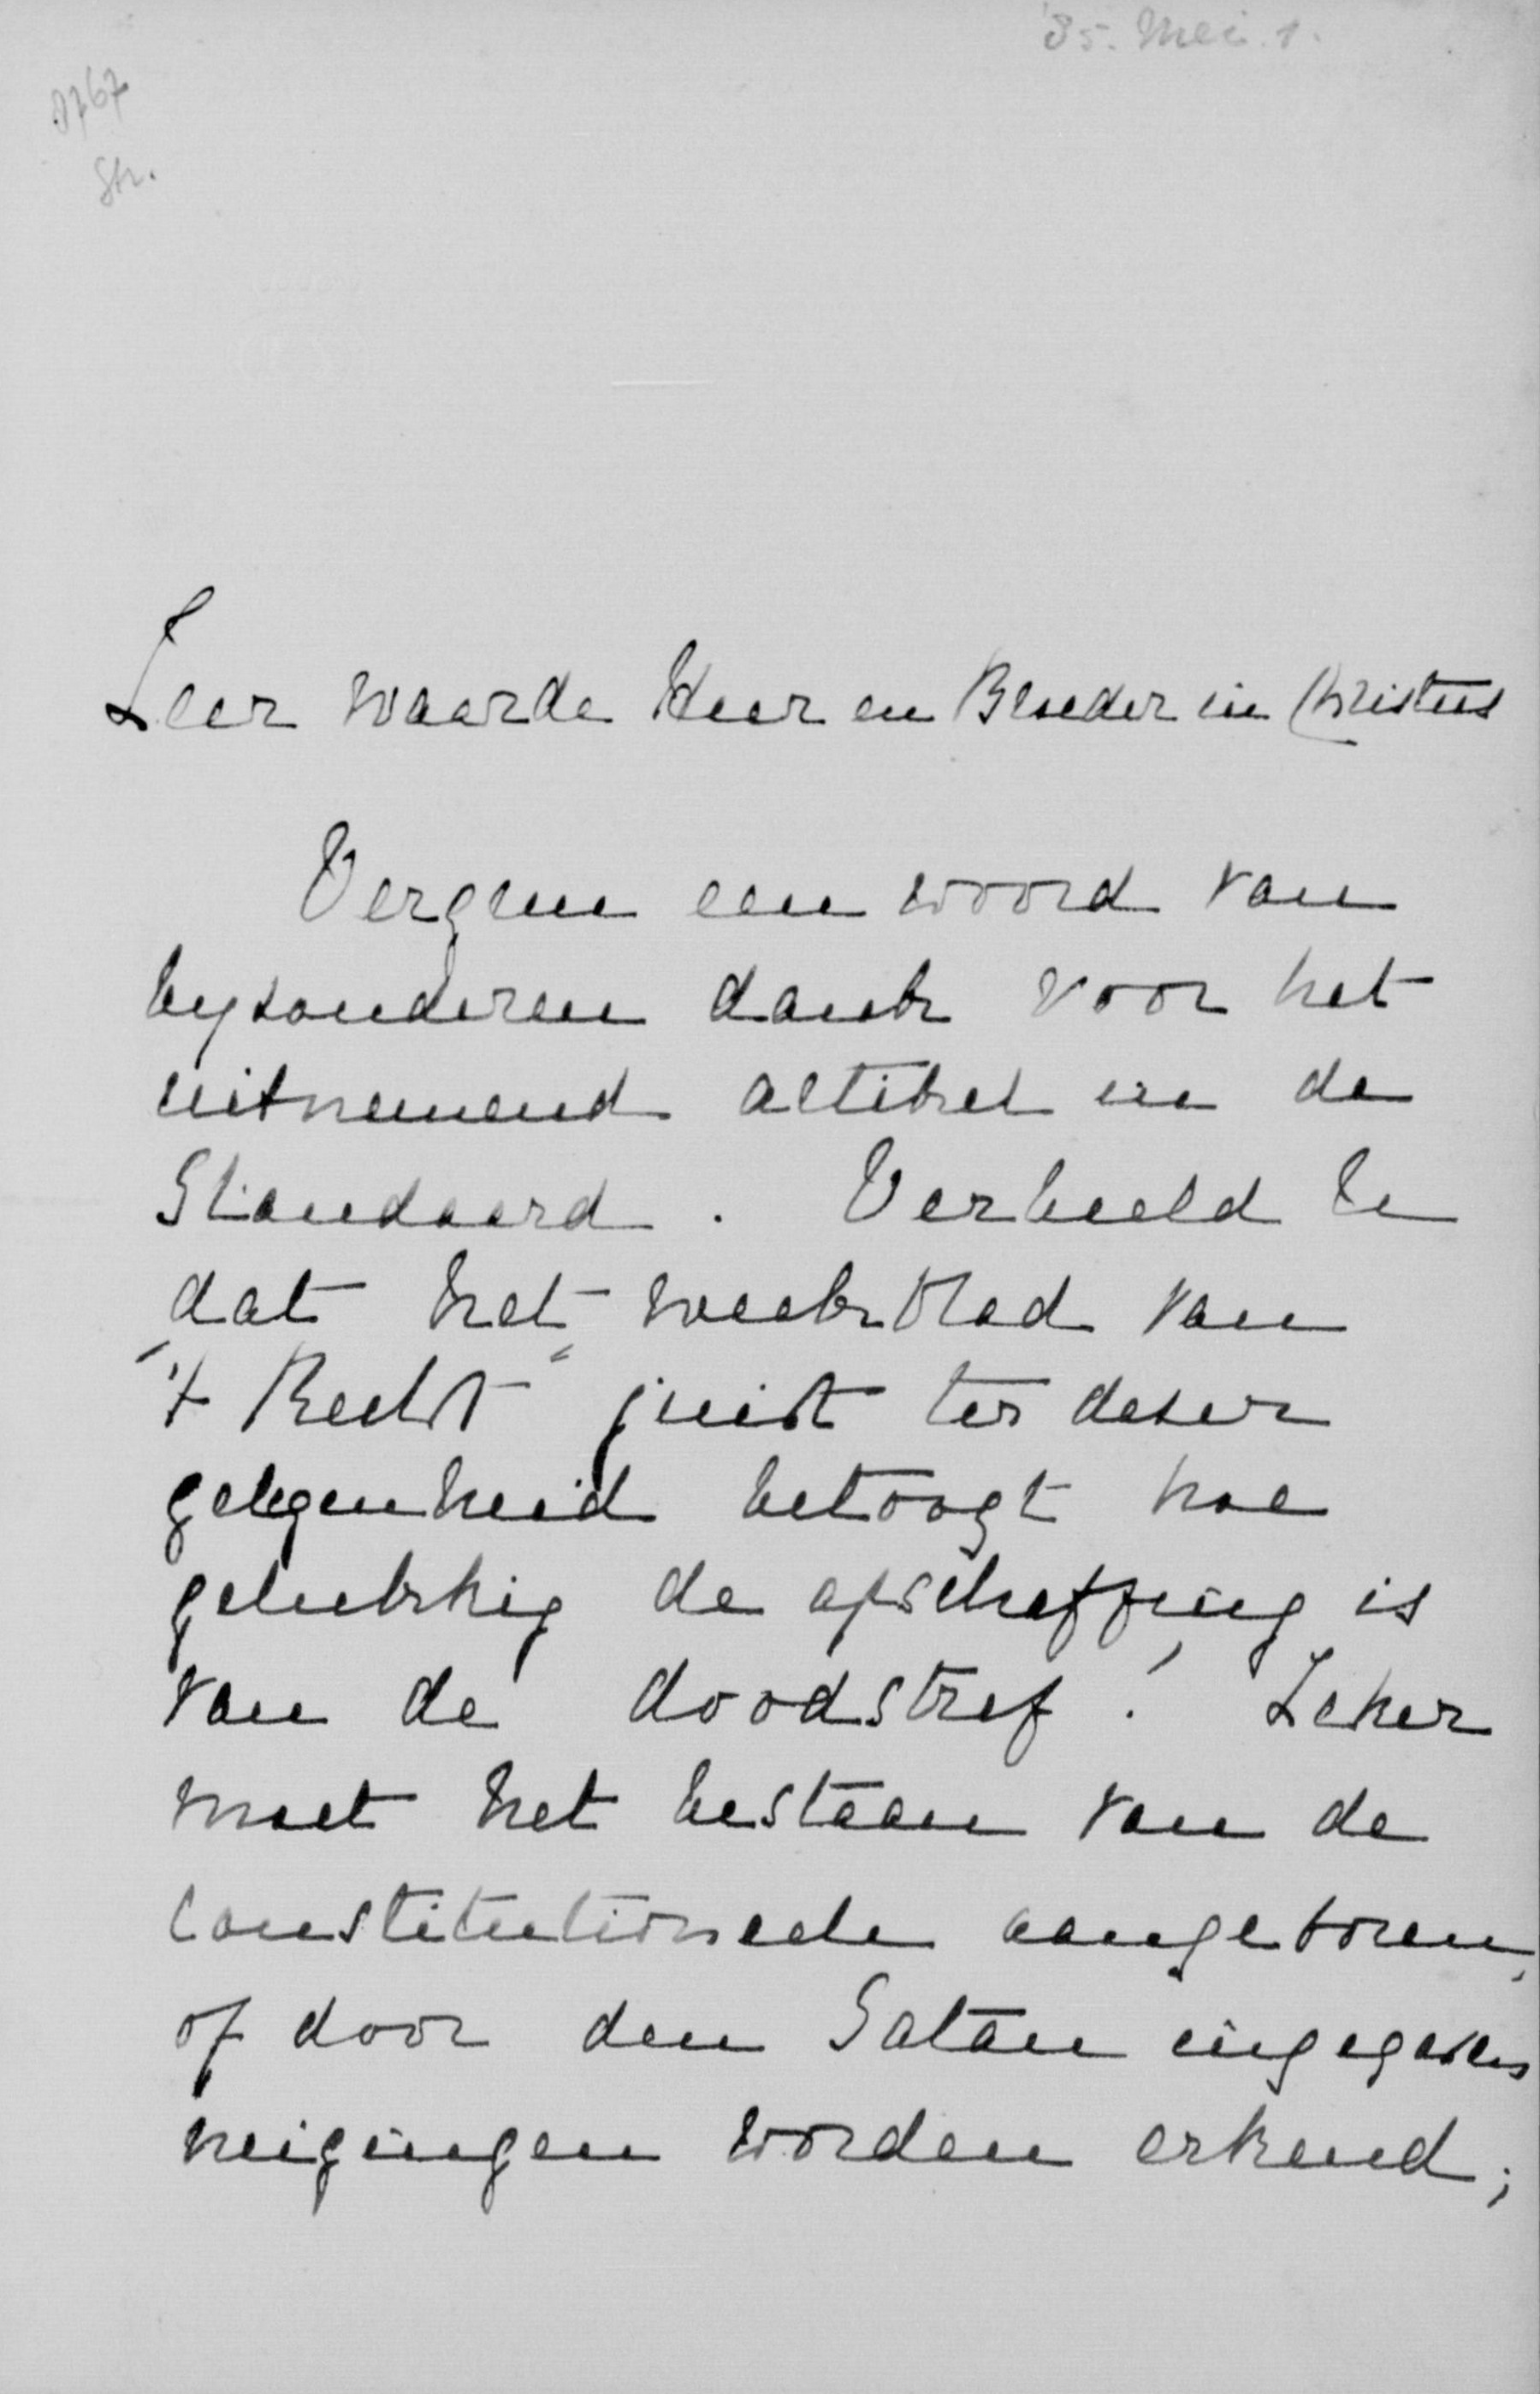 '85. Mei. 1.
3767
Str.
Zeer waarde Heer en Broeder in Christus
Vergun een woord van
byzonderen dank voor het
uitnemend artikel in de
Standaard. Verbeeld U
dat het weekblad van
't Recht juist ter dezer
gelegenheid betoogt hoe
gelukkig de afschaffing is
van de doodstraf! Zeker
moet het bestaan van de
constitutioneele aangeboren,
of door den Satan ingegeven
neigingen worden erkend;